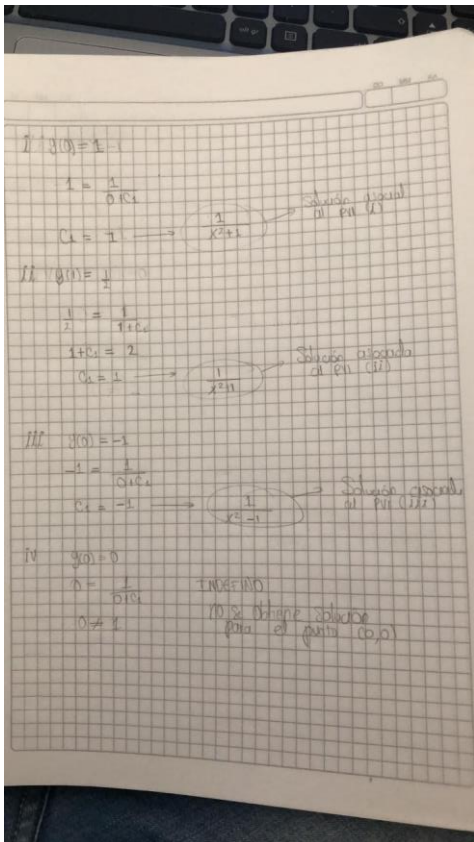 I y(0) = 1
1 = 1/(0+C₁)
C₁ = 1 → 1/(x²+1) → Solución
al PVI (I)
II y(1) = 1/2
1/2 = 1/(1+C₁)
1+C₁ = 2
C₁ = 1 → 1/(x²+1) → Solución asociada
al PVI (II)
III y(0) = -1
-1 = 1/(0+C₁)
C₁ = -1 → 1/(x²-1) → Solución
al PVI (III)
IV y(0) = 0
0 = 1/(0+C₁) INDEFINIDO
0 ≠ 1 no se obtiene solución
para el punto (0,0)